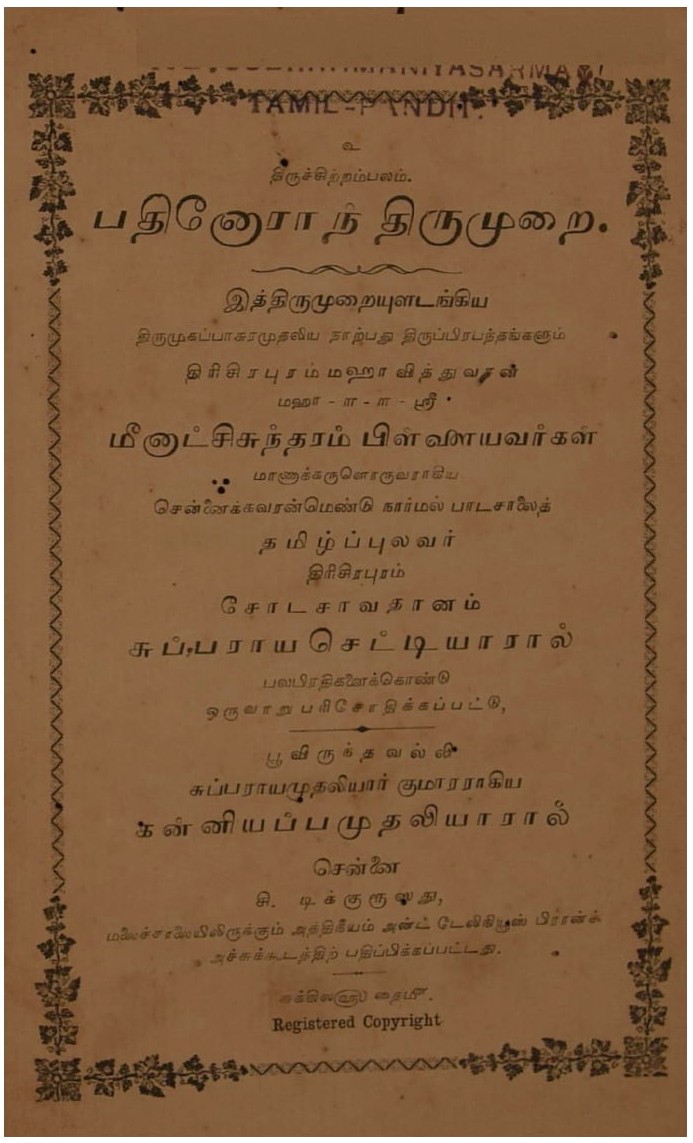 TAMIL-PANDIT.
உ
திருச்சிற்றம்பலம்.
பதினோராந் திருமுறை.
இத்திருமுறையுளடங்கிய
திருமுகப்பாசுரமுதலிய நாற்பது திருப்பிரபந்தங்களும்
திரிசிரபுரம்மஹாவித்துவான்
மஹா - ா - ா - ஸ்ரீ
மீனாட்சிசுந்தரம் பிள்ளையவர்கள்
மாணாக்கருளொருவராகிய
சென்னைக்கவரன்மெண்டு நார்மல் பாடசாலைத்
தமிழ்ப்புலவர்
திரிசிரபுரம்
சோடசாவதானம்
சுப்பராயசெட்டியாரால்
பலபிரதிகளைக்கொண்டு
ஒருவாறுபரிசோதிக்கப்பட்டு,
பூவிருந்தவல்லி
சுப்பராயமுதலியார் குமாரராகிய
கன்னியப்பமுதலியாரால்
சென்னை
சி.
மலைச்சாலையிலிருக்கும் அத்திகீயம் அன்ட் டேலிகியூஸ் பிரான்ச்
அச்சுக்கூடத்திற் பதிப்பிக்கப்பட்டது.
Registered Copyright